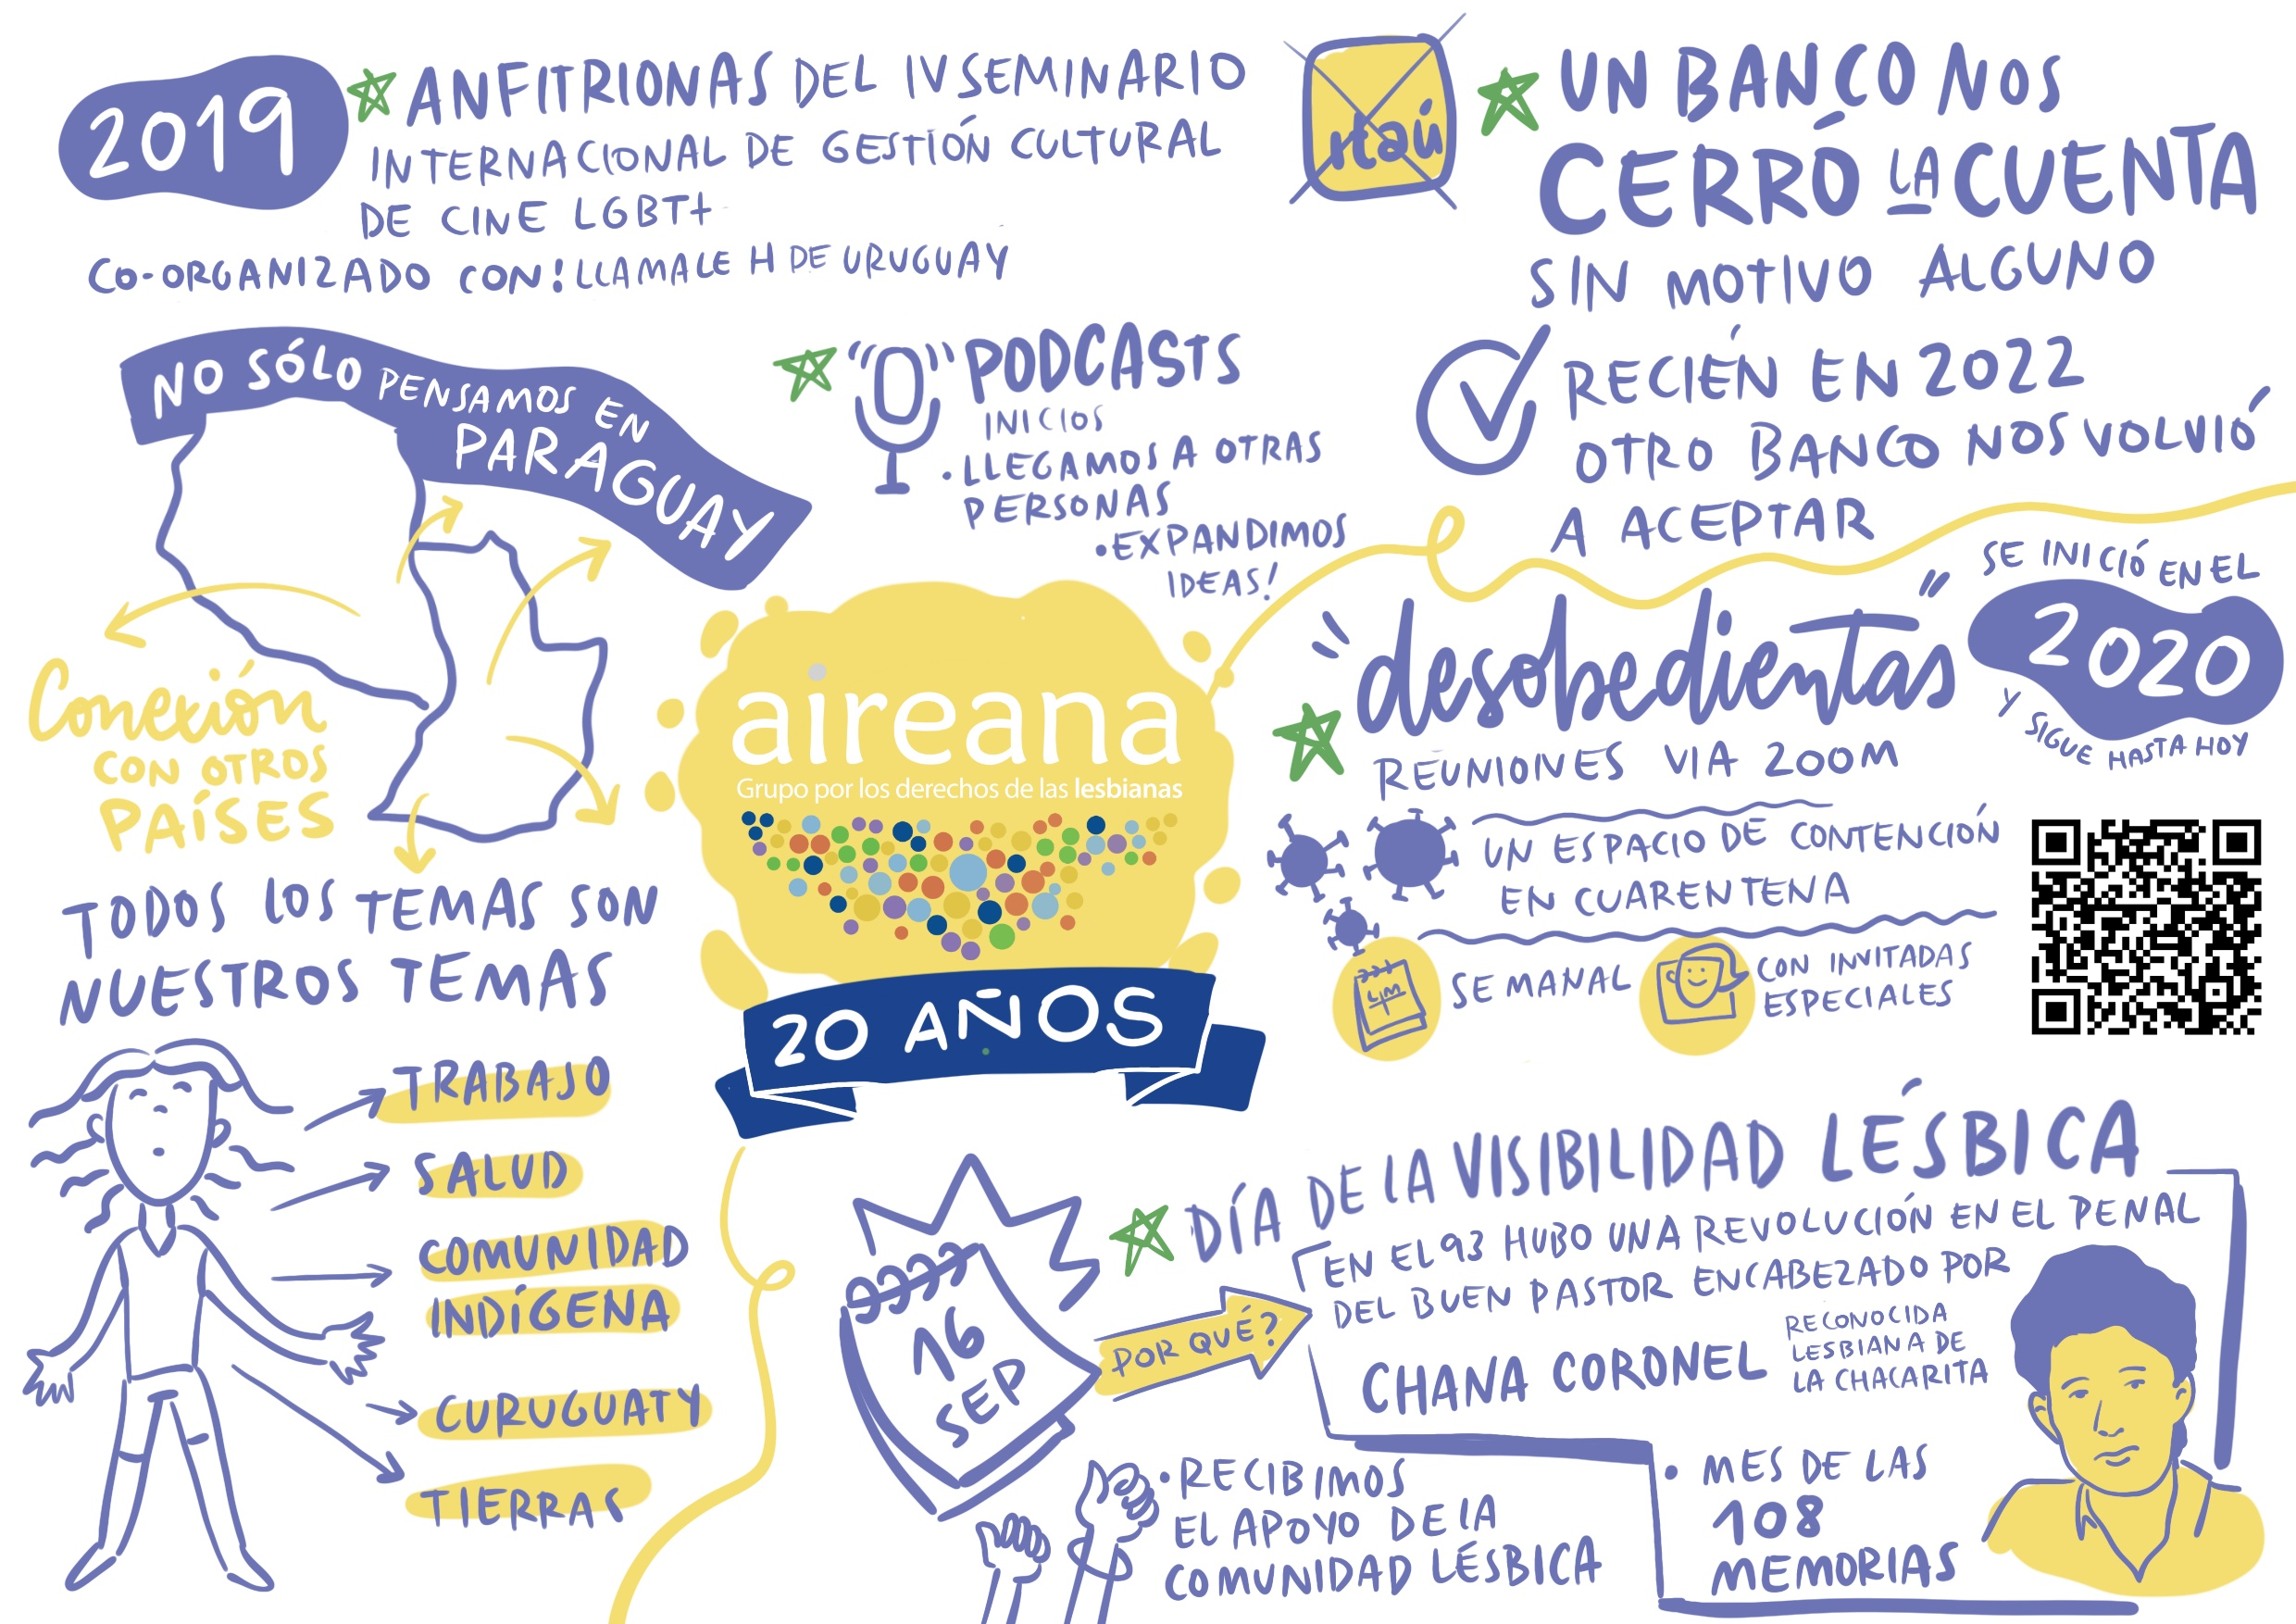 2019
ANFITRIONAS DEL IV SEMINARIO
INTERNACIONAL DE GESTIÓN CULTURAL
DE CINE LGBT+
CO-ORGANIZADO CON! LLAMALE H DE URUGUAY
itaú
UN BANCO NOS
CERRÓ LA CUENTA
SIN MOTIVO ALGUNO
RECIÉN EN 2022
OTRO BANCO NOS VOLVIÓ
A ACEPTAR
NO SÓLO PENSAMOS EN
PARAGUAY
Conexión
CON OTROS
PAÍSES
PODCASTS
INICIOS
• LLEGAMOS A OTRAS
PERSONAS
• EXPANDIMOS
IDEAS!
aireana
Grupo por los derechos de las lesbianas
20 AÑOS
"desobedientas"
SE INICIÓ EN EL
2020
Y SIGUE HASTA HOY
REUNIONES VIA ZOOM
UN ESPACIO DE CONTENCIÓN
EN CUARENTENA
L M
SEMANAL
CON INVITADAS
ESPECIALES
TODOS LOS TEMAS SON
NUESTROS TEMAS
TRABAJO
SALUD
COMUNIDAD
INDÍGENA
CURUGUATY
TIERRAS
16
SEP
DÍA DE LA VISIBILIDAD LÉSBICA
POR QUÉ?
EN EL 93 HUBO UNA REVOLUCIÓN EN EL PENAL
DEL BUEN PASTOR ENCABEZADO POR
CHANA CORONEL
RECONOCIDA
LESBIANA DE
LA CHACARITA
• RECIBIMOS
EL APOYO DE LA
COMUNIDAD LÉSBICA
• MES DE LAS
108
MEMORIAS